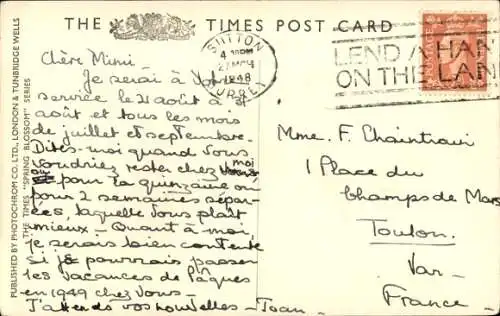 THE TIMES POST CARD
SUTTON
1948
SURREY
LEND A HAND
ON THE LAND
PUBLISHED BY PHOTOCHROM CO. LTD., LONDON & TUNBRIDGE WELLS
THE TIMES "SPRING BLOSSOM" SERIES
Chère Mimi -
Je serai à votre
service le 21 août à 31
août et tous les mois
de juillet et septembre.
Dites-moi quand vous
voudriez rester chez moi
ou pour la quinzaine ou
pour 2 semaines sépar-
ées, laquelle vous plaît
mieux. - Quant à moi,
je serais bien contente
si je pourrais passer
les vacances de Pâques
en 1949 chez vous -
J'attends vos nouvelles - Joan.
Mme. F. Chaintraui
1 Place du
Champs de Mars
Toulon.
Var -
France -